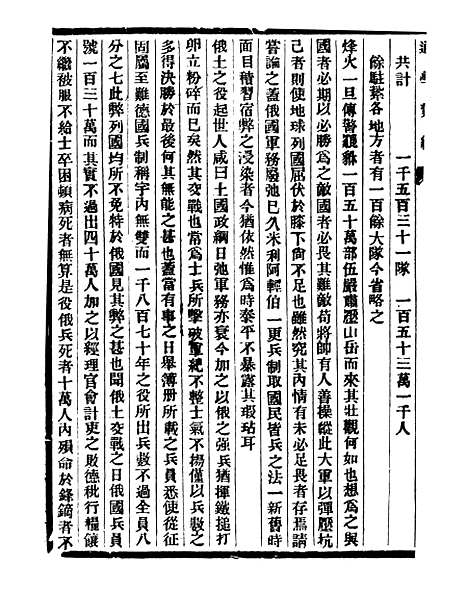 共計　一千五百三十一隊　一百五十三萬一千人
餘駐紮各地方者有一百餘大隊今省略之
烽火一旦傳警號稱一百五十萬部伍嚴肅壓山岳而來其壯觀何如也想為之與
國者必期以必勝為之敵國者必畏其難敵苟將帥有人善操縱此大軍以彈壓坑
己者則使地球列國屈伏於膝下尙不足也雖然究其內情有未必足畏者存焉請
嘗論之蓋俄國軍務廢弛已久米利阿輕伯一更兵制取國民皆兵之法一新舊時
面目積習宿弊之浸染者今猶依然惟為時泰平不暴露其瑕玷耳
俄土之役起世人咸曰土國政綱日弛軍務亦衰今加之以俄之強兵猶揮鐵鎚打
卵立粉碎而已矣然其交戰也當為士兵所擊破軍紀不整士氣不揚僅以兵數之
多得決勝於最後何其無能之甚也蓋當有事之日舉簿册所載之兵員悉使從征
固屬至難德國兵制稱宇內無雙而一千八百七十年之役所出兵數不過全員八
分之七此弊列國均所不免特於俄國見其弊之甚也聞俄土交戰之日俄國兵員
號一百三十萬而其實不過出四十萬人加之以經理官會計吏之敗德秕行糧餉
不繼被服不給士卒困頓病死者無算是役俄兵死者十萬人內殞命於鋒鏑者不